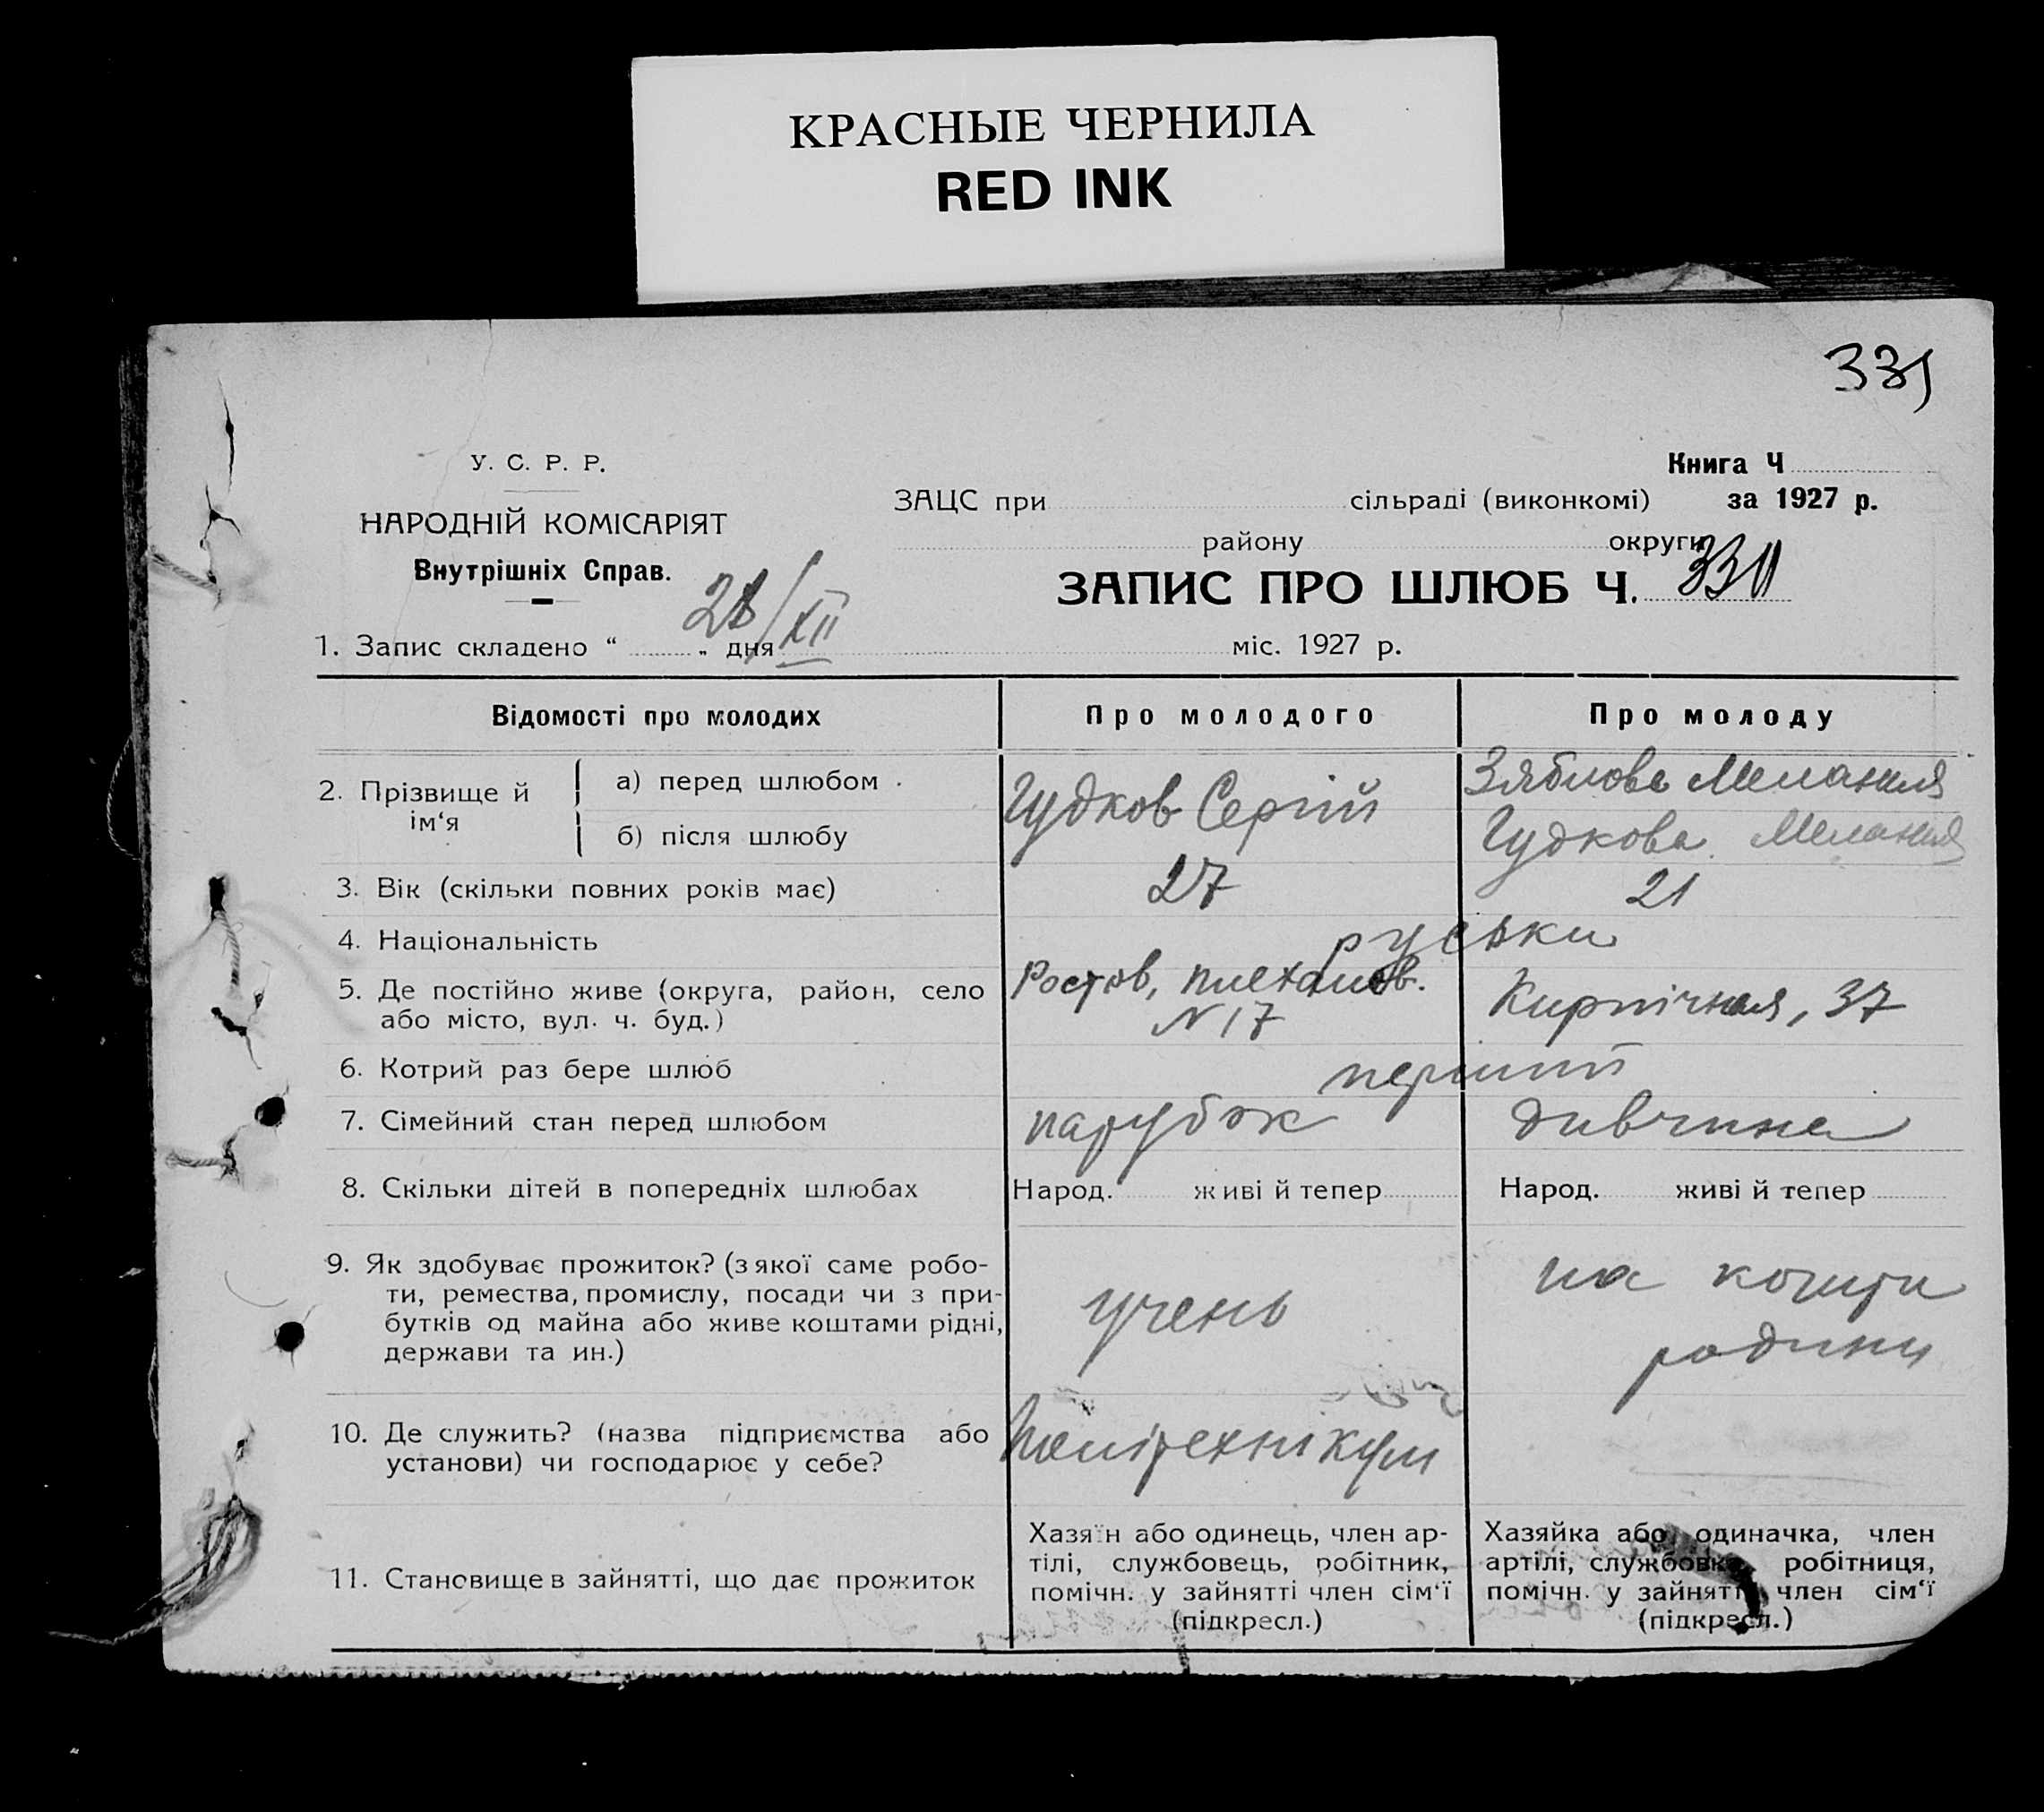 КРАСНЫЕ ЧЕРНИЛА
RED INK
У. С. Р. Р.
НАРОДНІЙ КОМІСАРІЯТ
Внутрішніх Справ.
Книга Ч
ЗАЦС при сільраді (виконкомі) за 1927 р.
району округи
ЗАПИС ПРО ШЛЮБ Ч. 330
1. Запис складено “ 28/XII „ дня міс. 1927 р.
Відомості про молодих
Про молодого
Про молоду
2. Прізвище й ім‘я
а) перед шлюбом
Гудков Сергій
Зяблова Мелания
б) після шлюбу
Гудкова Мелания
3. Вік (скільки повних років має)
27
21
4. Національність
руськи
5. Де постійно живе (округа, район, село
або місто, вул. ч. буд.)
Ростов, Плеханов.
N 17
Кирпічная, 37
6. Котрий раз бере шлюб
перший
7. Сімейний стан перед шлюбом
парубок
дивчина
8. Скільки дітей в попередніх шлюбах
Народ. живі й тепер
Народ. живі й тепер
9. Як здобуває прожиток? (з якої саме робо-
ти, ремества, промислу, посади чи з при-
бутків од майна або живе коштами рідні,
держави та ин.)
учень
на кошти
родини
10. Де служить? (назва підприємства або
установи) чи господарює у себе?
Політехнікум
11. Становище в зайнятті, що дає прожиток
Хазяїн або одинець, член ар-
тілі, службовець, робітник,
помічн. у зайнятті член сім‘ї
(підкресл.)
Хазяйка або одиначка, член
артілі, службовка, робітниця,
помічн. у зайнятті член сім‘ї
(підкресл.)